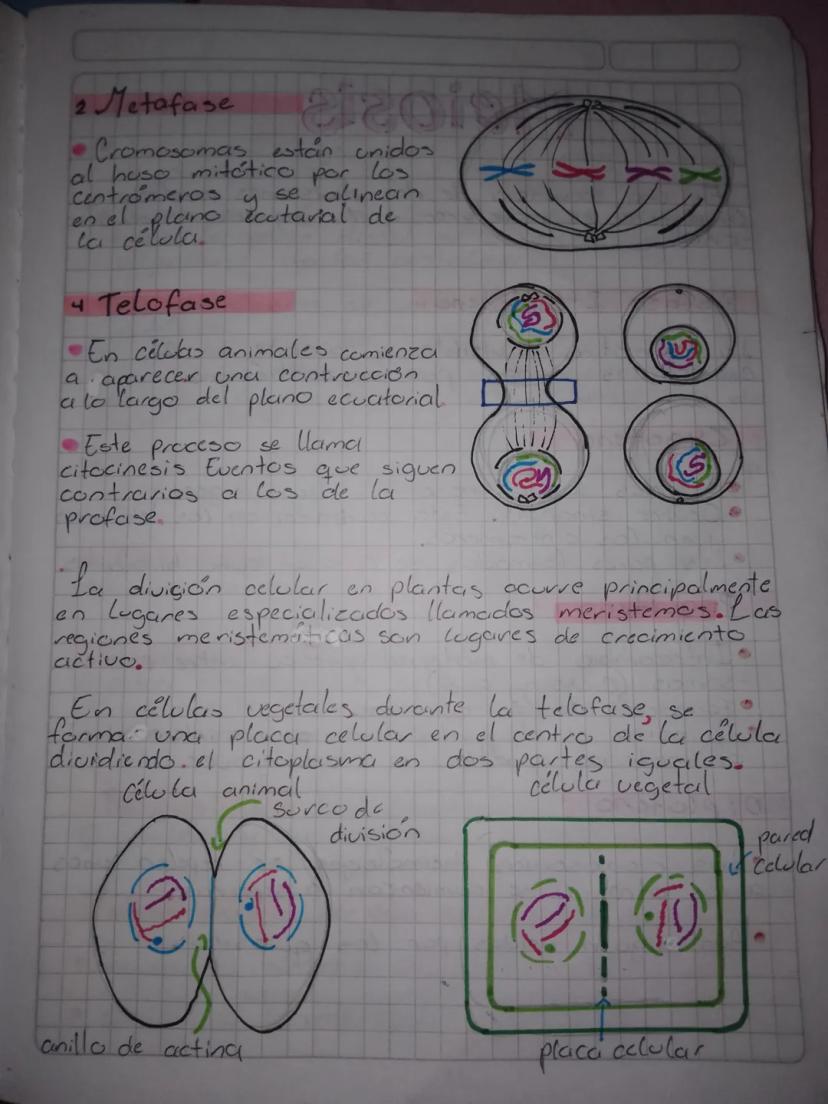 2 Metafase
• Cromosomas están unidos
al huso mitótico por los
centrómeros y se alinean
en el plano ecutarial de
la célula.
4 Telofase
• En células animales comienza
a aparecer una contrucción
a lo largo del plano ecuatorial
• Este proceso se llama
citocinesis Eventos que siguen
contrarios a los de la
profase.
La división celular en plantas ocurre principalmente
en lugares especializados llamados meristemos. Las
regiones meristemáticas son lugares de crecimiento
activo.
En células vegetales durante la telofase, se
forma una placa celular en el centro de la célula
dividiendo el citoplasma en dos partes iguales.
célula animal
célula vegetal
surco de
división
pared
celular
anillo de actina
placa celular